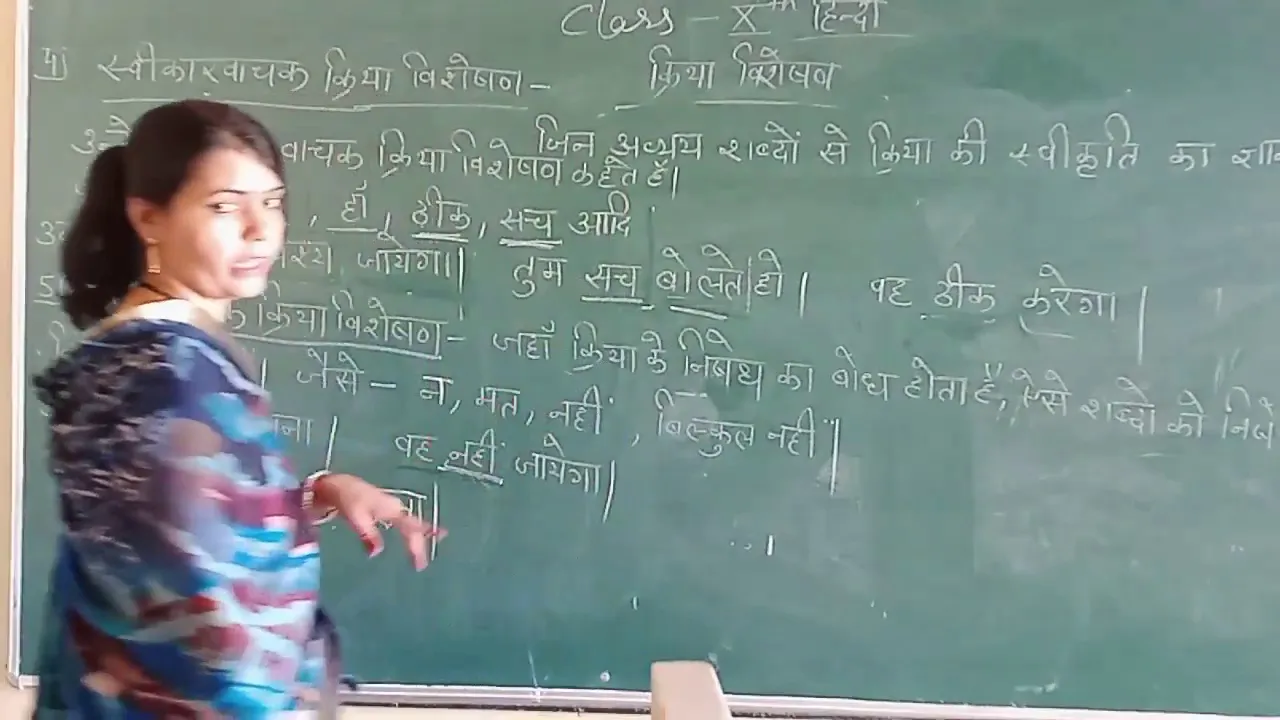 Class - Xth हिन्दी
4) स्वीकारवाचक क्रिया विशेषण - क्रिया विशेषण
जिन अव्यय शब्दों से क्रिया की स्वीकृति का
वाचक क्रिया विशेषण कहते हैं।
, हाँ, ठीक, सच आदि
जायेगा।। तुम सच बोलते हो। वह ठीक करेगा।
5) क्रिया विशेषण - जहाँ क्रिया के निषेध का बोध होता है, ऐसे शब्दो को
जैसे - न, मत, नहीं, बिल्कुल नहीं।
वह नहीं जायेगा।